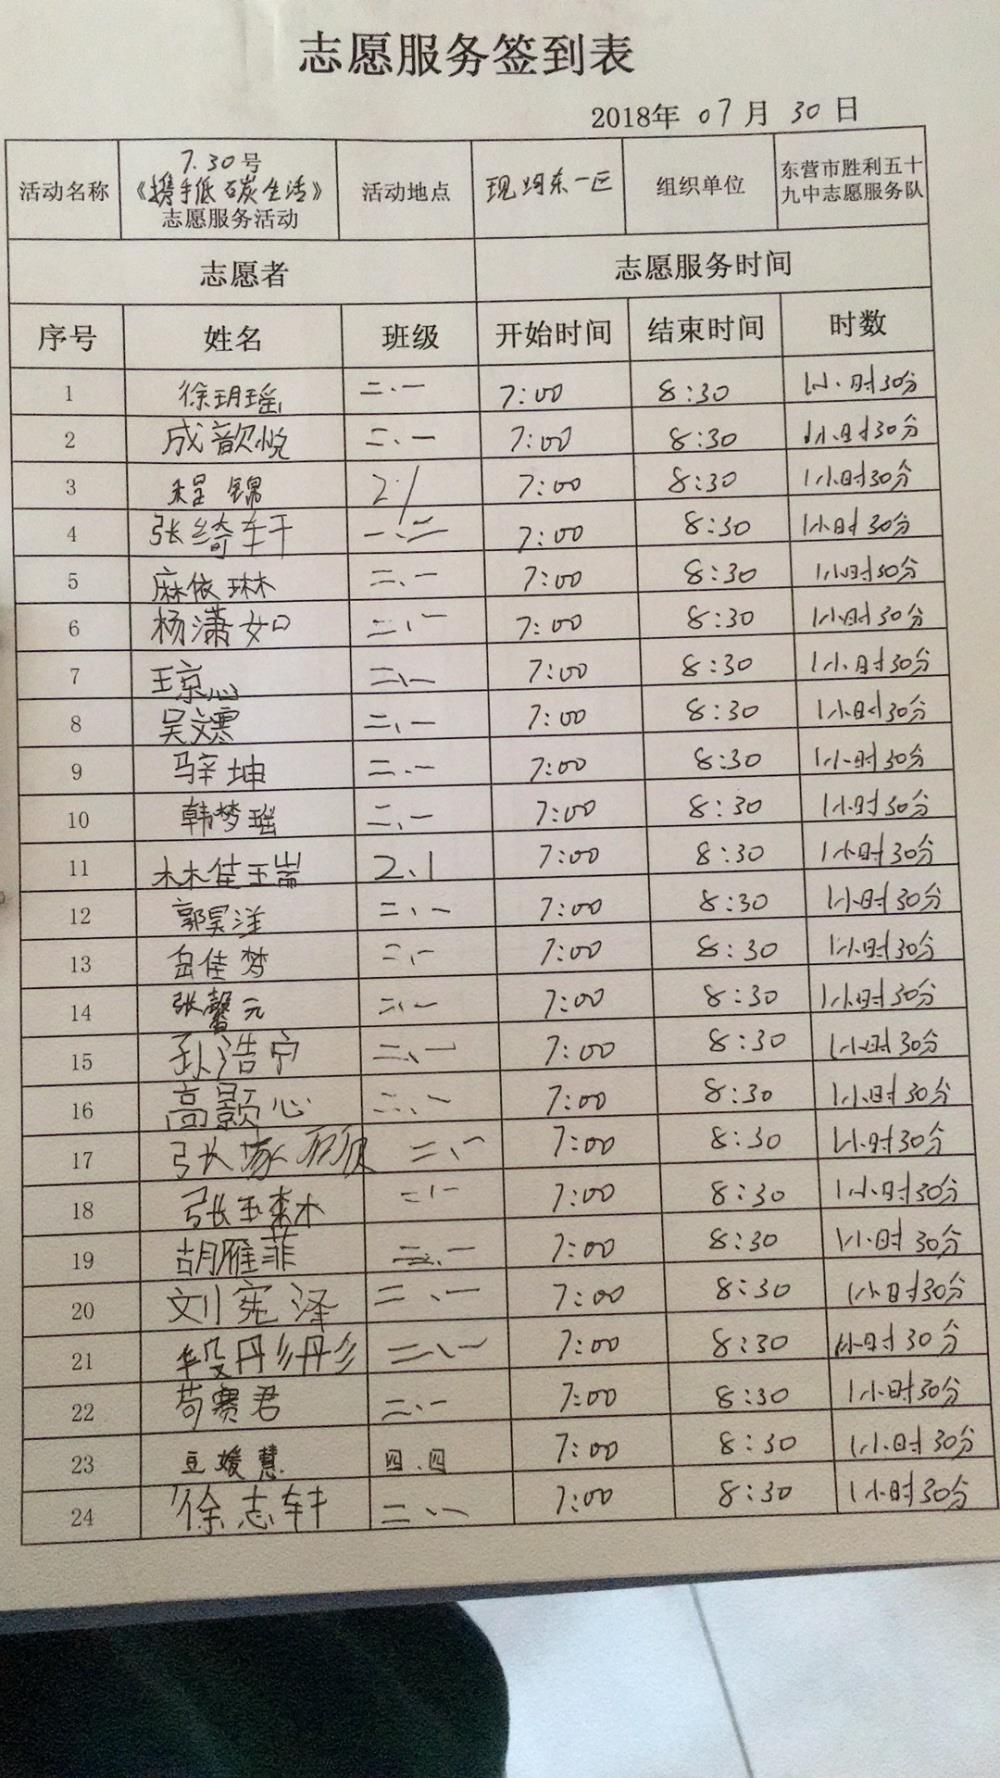 志愿服务签到表
2018年 07 月 30 日
活动名称 7.30号《携手低碳生活》志愿服务活动 活动地点 现河东一区 组织单位 东营市胜利五十九中志愿服务队
志愿者 志愿服务时间
序号 姓名 班级 开始时间 结束时间 时数
1 徐玥瑶 二、一 7:00 8:30 1小时30分
2 成歆悦 二、一 7:00 8:30 1小时30分
3 程锦 2/1 7:00 8:30 1小时30分
4 张绮轩 一、二 7:00 8:30 1小时30分
5 麻依琳 二、一 7:00 8:30 1小时30分
6 杨潇如 二、一 7:00 8:30 1小时30分
7 王惊心 二、一 7:00 8:30 1小时30分
8 吴文 二、一 7:00 8:30 1小时30分
9 马辛坤 二、一 7:00 8:30 1小时30分
10 韩梦瑶 二、一 7:00 8:30 1小时30分
11 林佳瑞 2、1 7:00 8:30 1小时30分
12 郭昊洋 二、一 7:00 8:30 1小时30分
13 岳佳梦 二、一 7:00 8:30 1小时30分
14 张馨元 二、一 7:00 8:30 1小时30分
15 孙浩宁 二、一 7:00 8:30 1小时30分
16 高颢心 二、一 7:00 8:30 1小时30分
17 张 二、一 7:00 8:30 1小时30分
18 张玉 二、一 7:00 8:30 1小时30分
19 胡雁菲 二、一 7:00 8:30 1小时30分
20 刘宪泽 二、一 7:00 8:30 1小时30分
21 段彤彤 二、一 7:00 8:30 1小时30分
22 苟赛君 二、一 7:00 8:30 1小时30分
23 豆媛慧 四、四 7:00 8:30 1小时30分
24 徐志轩 二、一 7:00 8:30 1小时30分